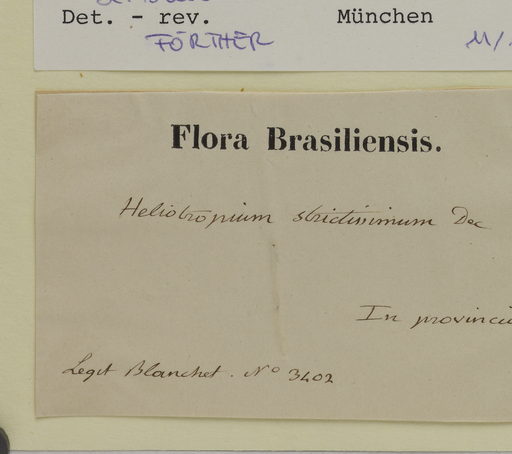 Det. - rev. München
FÖRTHER 11/
Flora Brasiliensis.
Heliotropium strictissimum Dec
In provinci
Legit Blanchet. No 3402